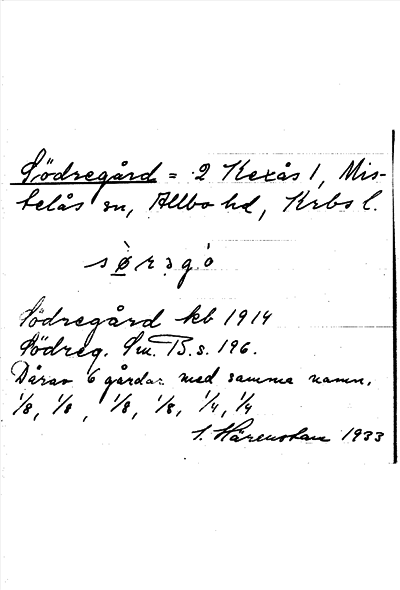 Södregård = 2 Kexås 1, Mis-
telås sn, Allbo hd, Krbs l.
sørsgo
Södregård kb 1914
Södreg. Sm. B. s. 196.
Därav 6 gårdar med samma namn.
1/8, 1/8, 1/8, 1/8, 1/4, 1/4
1933